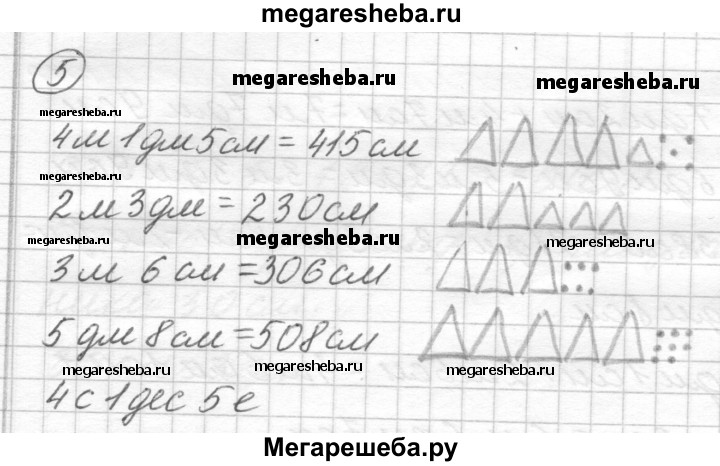 megaresheba.ru
5
megaresheba.ru megaresheba.ru
megaresheba.ru
4м 1дм 5см = 415см
2м 3дм = 230см
megaresheba.ru megaresheba.ru megaresheba.ru
3м 6см = 306см
5дм 8см = 508см
megaresheba.ru megaresheba.ru megaresheba.ru
4с 1дес 5е
Мегарешеба.ру